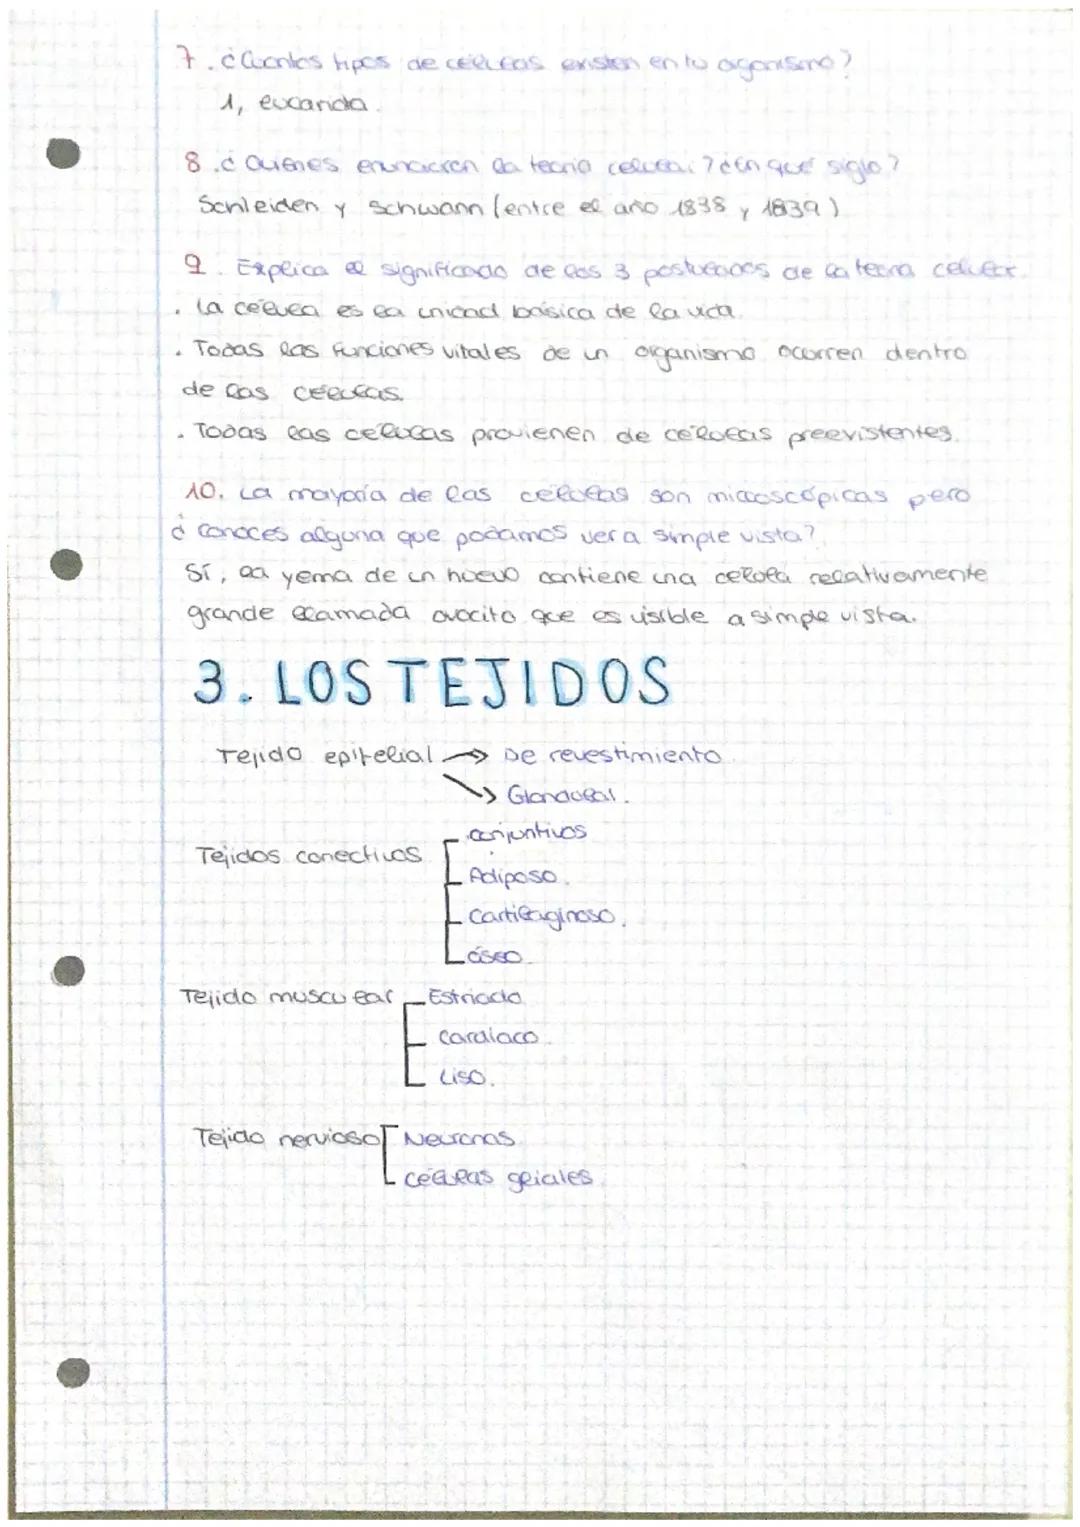 7. ¿Cuantos tipos de células existen en tu organismo?
1, eucariota.
8. ¿Quienes enunciaron la teoria celular? ¿En qué siglo?
Schleiden y Schwann (entre el año 1838 y 1839)
9. Explica el significado de los 3 postulados de la teoria celular.
. La célula es la unidad básica de la vida.
. Todas las funciones vitales de un organismo ocurren dentro
de las células.
. Todas las células provienen de células preexistentes.
10. La mayoría de las células son microscópicas pero
¿conoces alguna que podamos ver a simple vista?
Sí, la yema de un huevo contiene una célula relativamente
grande llamada ovocito que es visible a simple vista.
3. LOS TEJIDOS
Tejido epitelial → De revestimiento.
→ Glandular.
Tejidos conectivos
conjuntivos
Adiposo.
Cartilaginoso.
óseo.
Tejido muscular
Estriado
cardíaco.
Liso.
Tejido nervioso
Neuronas
células gliales.